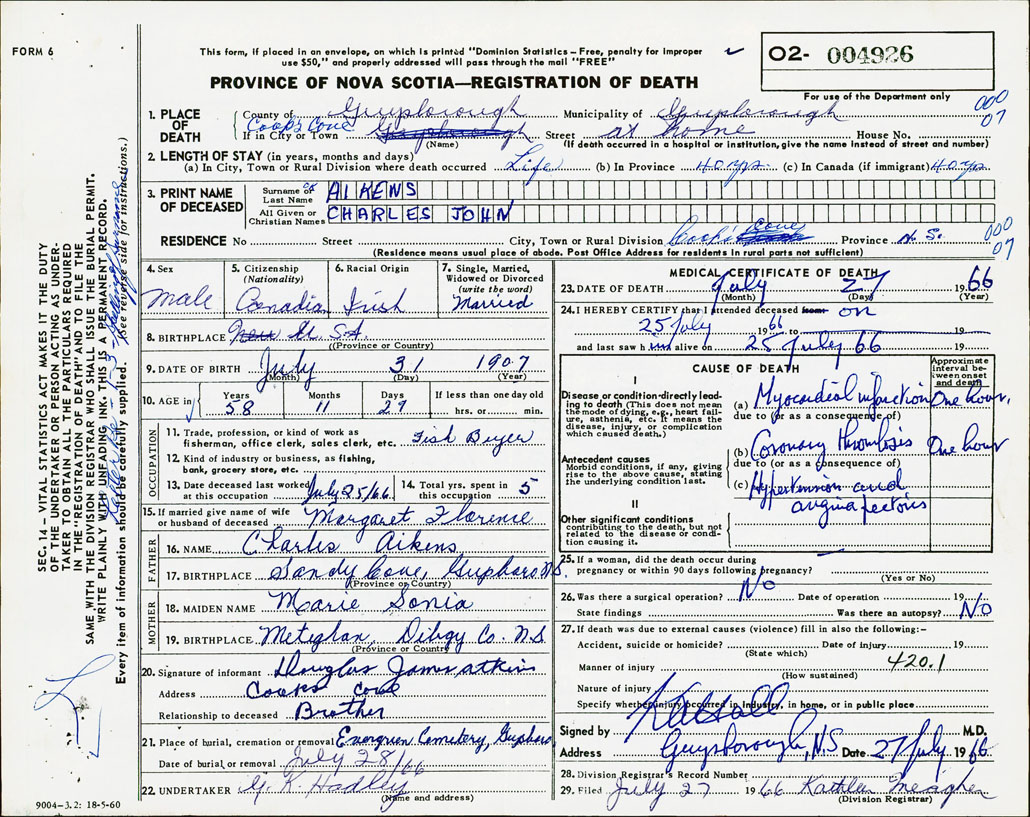 FORM 6
This form, if placed in an envelope, on which is printed "Dominion Statistics – Free, penalty for improper
use $50," and properly addressed will pass through the mail "FREE"
O2- 004926
PROVINCE OF NOVA SCOTIA—REGISTRATION OF DEATH
For use of the Department only
1. PLACE OF DEATH
County of Guysborough Municipality of Guysborough 000
Cook's Cove 07
If in City or Town Guysborough Street at home House No.
(Name) (If death occurred in a hospital or institution, give the name instead of street and number)
2. LENGTH OF STAY (in years, months and days)
(a) In City, Town or Rural Division where death occurred Life (b) In Province 40 yrs. (c) In Canada (if immigrant) 40 yrs.
3. PRINT NAME OF DECEASED
Surname or Last Name AIKENS
All Given or Christian Names CHARLES JOHN
RESIDENCE No Street City, Town or Rural Division Cook's Cove Province N.S. 000
07
(Residence means usual place of abode. Post Office Address for residents in rural parts not sufficient)
4. Sex
Male
5. Citizenship
(Nationality)
Canadia
6. Racial Origin
Irish
7. Single, Married,
Widowed or Divorced
(write the word)
Married
8. BIRTHPLACE U.S.A.
(Province or Country)
9. DATE OF BIRTH July 31 1907
(Month) (Day) (Year)
10. AGE in
Years Months Days If less than one day old
58 11 27 hrs. or min.
OCCUPATION
11. Trade, profession, or kind of work as
fisherman, office clerk, sales clerk, etc. Fish Buyer
12. Kind of industry or business, as fishing,
bank, grocery store, etc.
13. Date deceased last worked
at this occupation July 25/66 14. Total yrs. spent in
this occupation 5
15. If married give name of wife
or husband of deceased Margaret Florence
FATHER
16. NAME Charles Aikens
17. BIRTHPLACE Sandy Cove, Guysboro N.S.
(Province or Country)
MOTHER
18. MAIDEN NAME Marie Sonia
19. BIRTHPLACE Meteghan, Dibgy Co. N.S
(Province or Country)
20. Signature of informant Douglas James Atkins
Address Cooks Cove
Relationship to deceased Brother
21. Place of burial, cremation or removal Evergreen Cemetery, Guysboro
Date of burial or removal July 28/66
22. UNDERTAKER G. K. Hadley
(Name and address)
MEDICAL CERTIFICATE OF DEATH
23. DATE OF DEATH July 27 1966
(Month) (Day) (Year)
24. I HEREBY CERTIFY that I attended deceased from on
25 July 1966 to 19
and last saw him alive on 25 July 66 19
CAUSE OF DEATH
Approximate
interval be-
tween onset
and death
I
Disease or condition directly lead-
ing to death (This does not mean
the mode of dying, e.g., heart fail-
ure, asthenia, etc. It means the
disease, injury, or complication
which caused death.)
(a) Myocardial infarction One hour.
due to (or as a consequence of)
Antecedent causes
Morbid conditions, if any, giving
rise to the above cause, stating
the underlying condition last.
(b) Coronary thrombosis One hour
due to (or as a consequence of)
(c) Hypertension and
angina pectoris
II
Other significant conditions
contributing to the death, but not
related to the disease or condi-
tion causing it.
25. If a woman, did the death occur during
pregnancy or within 90 days following pregnancy?
(Yes or No)
26. Was there a surgical operation? No Date of operation 19
State findings Was there an autopsy? No
27. If death was due to external causes (violence) fill in also the following:–
Accident, suicide or homicide? Date of injury 19
(State which)
Manner of injury 420.1
(How sustained)
Nature of injury
Specify whether injury occurred in Industry, in home, or in public place
Signed by M.D.
Address Guysborough, N.S Date 27 July 1966
28. Division Registrar's Record Number
29. Filed July 27 1966 Kathleen Meagher
(Division Registrar)
SEC. 14 – VITAL STATISTICS ACT MAKES IT THE DUTY
OF THE UNDERTAKER OR PERSON ACTING AS UNDER-
TAKER TO OBTAIN ALL THE PARTICULARS REQUIRED
IN THE "REGISTRATION OF DEATH" AND TO FILE THE
SAME WITH THE DIVISION REGISTRAR WHO SHALL ISSUE THE BURIAL PERMIT.
WRITE PLAINLY WITH UNFADING INK. THIS IS A PERMANENT RECORD.
Every item of information should be carefully supplied. (See reverse side for instructions.)
9004-3.2: 18-5-60